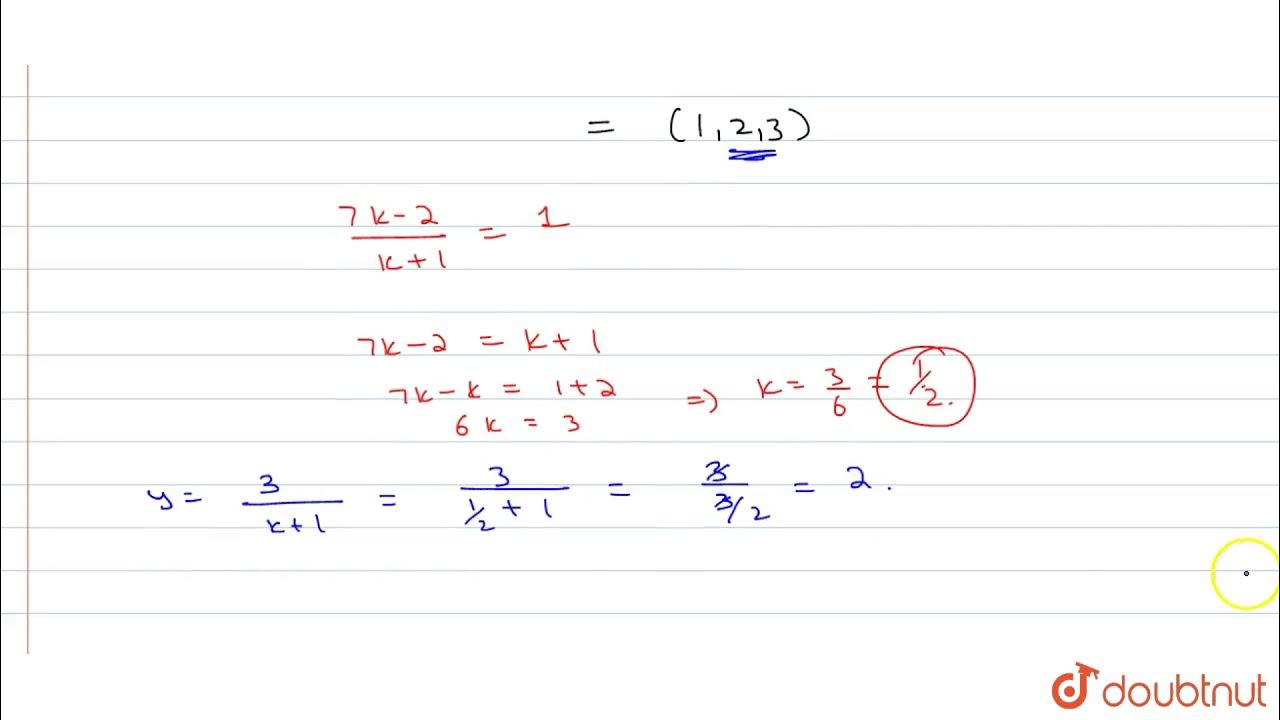 = (1,2,3)
7k-2/k+1 = 1
7k-2 = k+1
7k-k = 1+2
6k = 3 => k = 3/6 = 1/2.
y = 3/k+1 = 3/1/2+1 = 3/3/2 = 2.
doubtnut